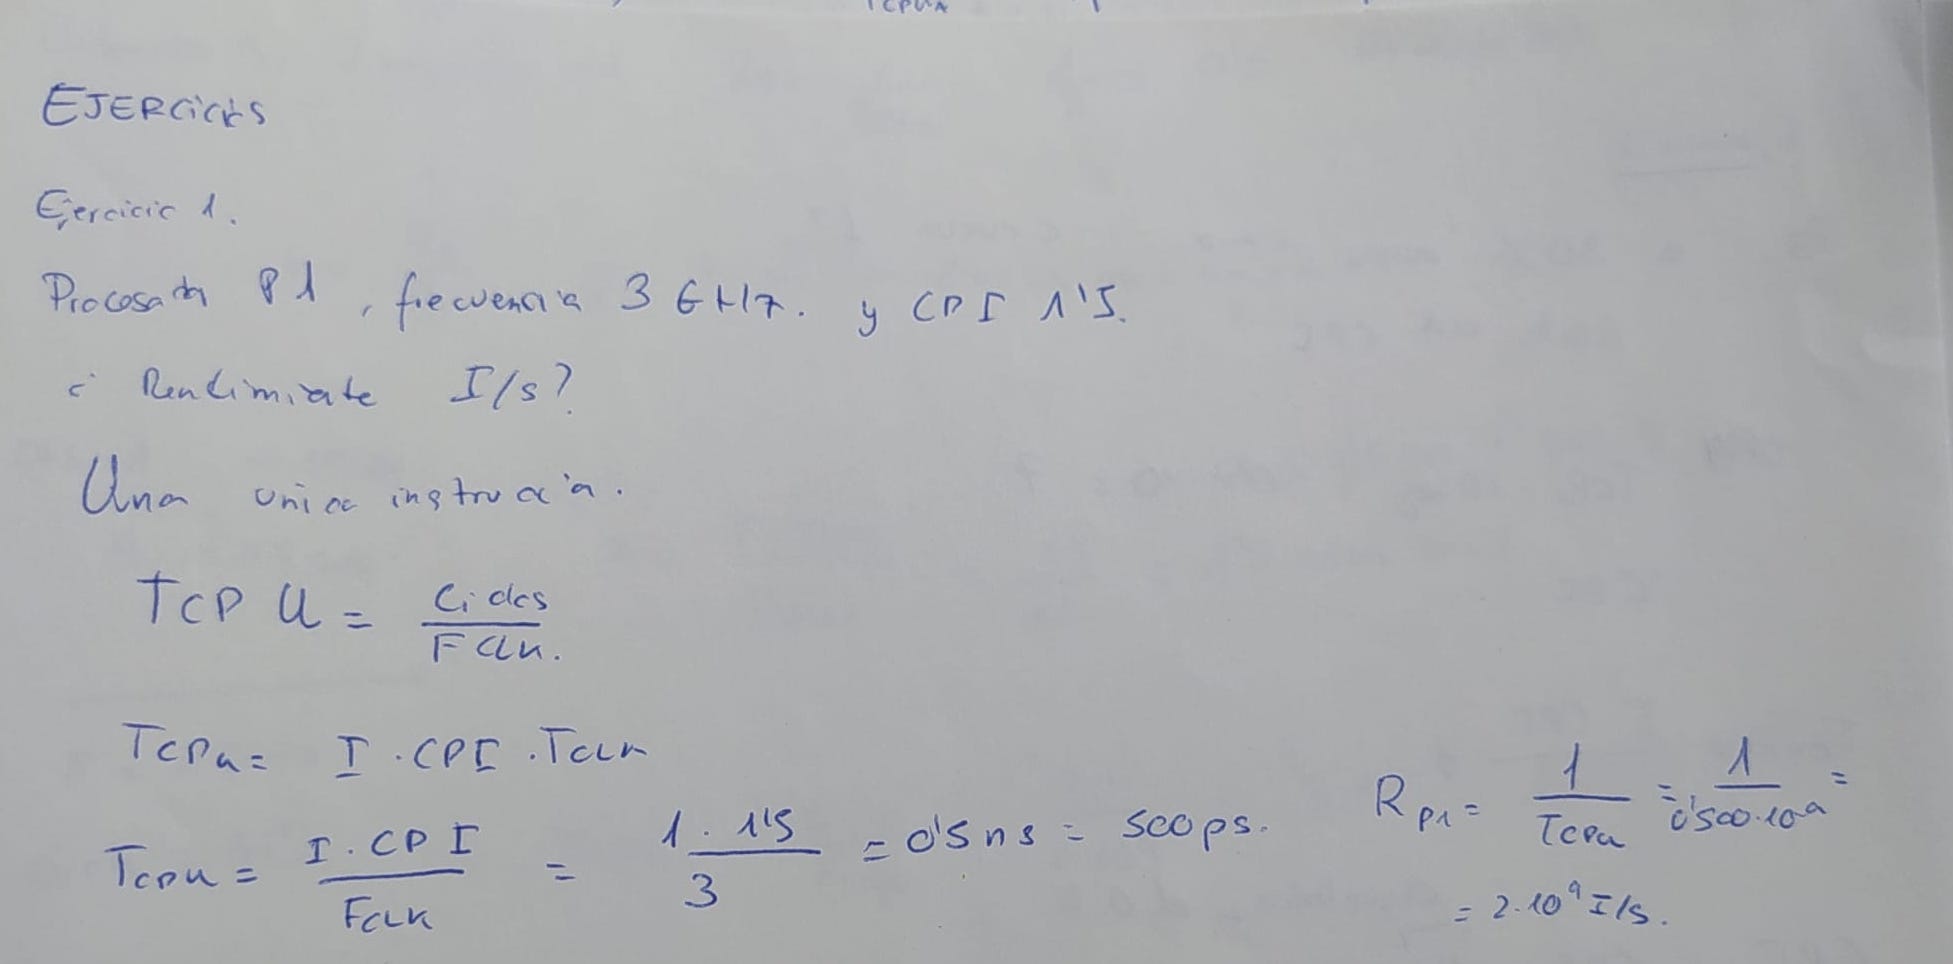 TCPUA
EJERCiCiOS
Ejercicio 1.
Procesador P1, frecuencia 3 GHz. y CPI 1'5.
¿ Rendimiento I/s?
Una unica instrucción.
TCPU = Ciclos / FCLK.
TCPU = I · CPI · TCLK
TCPU = I · CPI / FCLK = 1 · 1'5 / 3 = 0'5 ns = 500 ps.
RP1 = 1 / TCPU = 1 / 0'500·10⁻⁹ =
= 2·10⁹ I/s.